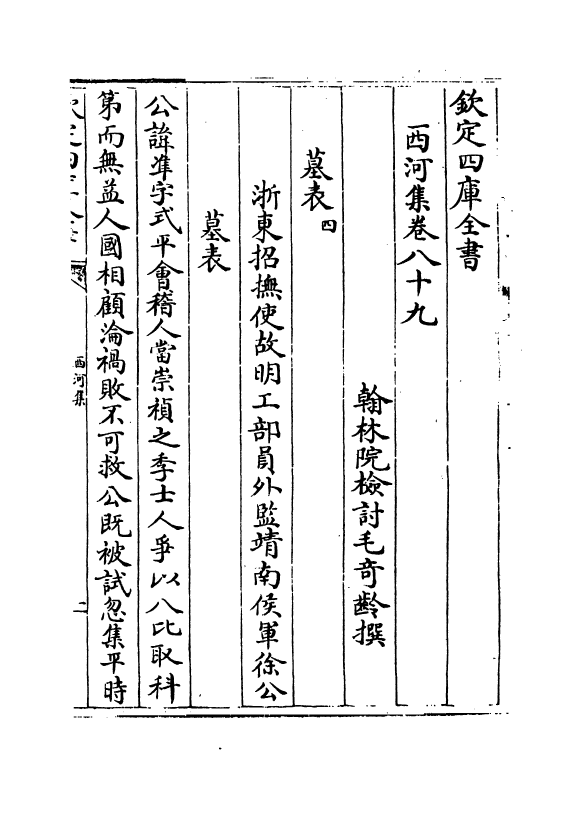 欽定四庫全書
西河集卷八十九
翰林院檢討毛奇齡撰
墓表四
浙東招撫使故明工部員外監靖南侯軍徐公
墓表
公諱準字式平會稽人當崇禎之季士人爭以八比取科
第而無益人國相顧淪禍敗不可救公既被試忽集平時
欽定四庫全書
西河集